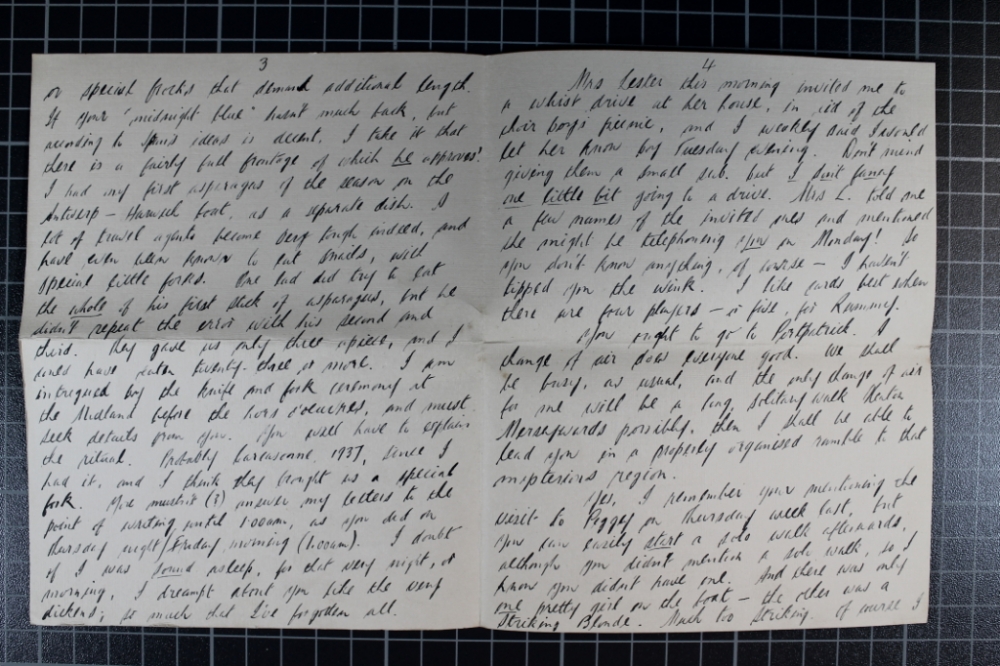 3
or special frocks that demand additional length.
If your "midnight blue" hasn't much back, but
according to Jim's ideas is decent, I take it that
there is a fairly full frontage of which he approves!
I had my first asparagus of the season on the
Antwerp – Harwich boat, as a separate dish. A
lot of travel agents became very tough indeed, and
have even been known to eat snails, with
special little forks. One lad did try to eat
the whole of his first stick of asparagus, but he
didn't repeat the error with his second and
third. They gave us only three apiece, and I
could have eaten twenty-three or more. I am
intrigued by the knife and fork ceremony at
the Midland before the hors d'oeuvres, and must
seek details from you. You will have to explain
the ritual. Probably Carcasonne, 1937, since I
had it, and I think they brought us a special
fork. You mustn't (?) answer my letters to the
point of writing until 1.00am, as you did on
Thursday night/Friday morning (1.00am). I doubt
if I was sound asleep, for that very night, or
morning, I dreampt about you like the very
dickens; so much that I've forgotten all.
4
Mrs Lester this morning invited me to
a whist drive at her house, in aid of the
choir boys picnic, and I weakly said I would
let her know by Tuesday evening. Don't mind
giving them a small sub. but I don't fancy
one little bit going to a drive. Mrs L. told me
a few names of the invited ones and mentioned
she might be telephoning you on Monday! So
you don't know anything, of course – I haven't
tipped you the wink. I like cards best when
there are four players – or five, for Rummy.
You ought to go to Portpatrick. A
change of air does everyone good. We shall
be busy, as usual, and the only change of air
for me will be a long, solitary walk
Merseywards possibly, then I shall be able to
lead you in a properly organised ramble to that
mysterious region.
Yes, I remember your mentioning the
visit to Peggy on Thursday week last, but
you can easily start a solo walk afterwards,
although you didn't mention a solo walk, so I
know you didn't have one. And there was only
one pretty girl on the boat – the other was a
Striking Blonde. Much too striking. Of course I